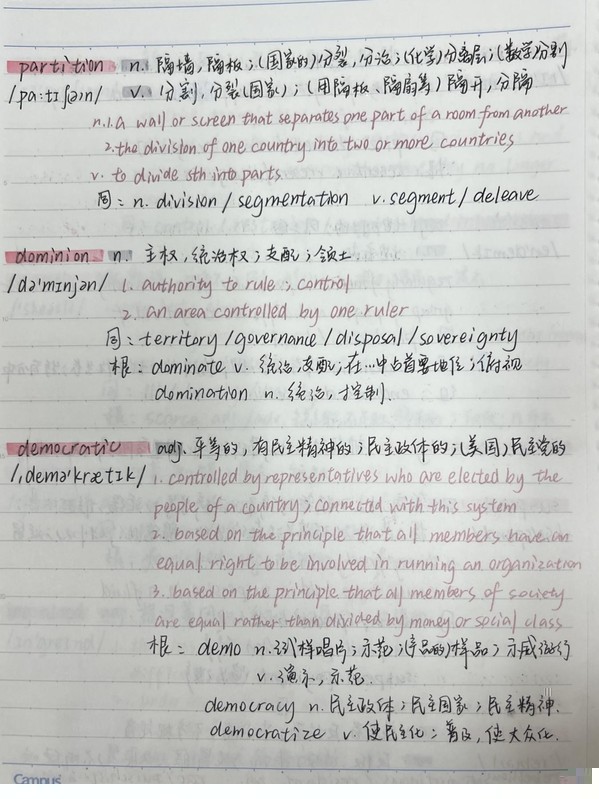 partition n. 隔墙,隔板;(国家的)分裂,分治;(化学)分离层;(数学)分割
/pa:tɪʃ(ə)n/ v. 分割,分裂(国家);(用隔板、隔扇等)隔开,分隔
n.1.a wall or screen that separates one part of a room from another
2.the division of one country into two or more countries
v. to divide sth into parts.
同:n. division / segmentation v. segment / deleave
dominion n. 主权,统治权;支配;领土.
/də'mɪnjən/ 1. authority to rule; control
2. an area controlled by one ruler
同:territory / governance / disposal / sovereignty
根:dominate v. 统治,支配;在…中占首要地位;俯视
domination n. 统治,控制.
democratic adj. 平等的,有民主精神的;民主政体的;(美国)民主党的
/ˌdemə'krætɪk/ 1. controlled by representatives who are elected by the
people of a country; connected with this system
2. based on the principle that all members have an
equal right to be involved in running an organization
3. based on the principle that all members of society
are equal rather than divided by money or social class
根:demo n.试样唱片;示范;(产品的)样品;示威游行
v.演示,示范.
democracy n.民主政体;民主国家;民主精神.
democratize v. 使民主化;普及,使大众化.
Campus